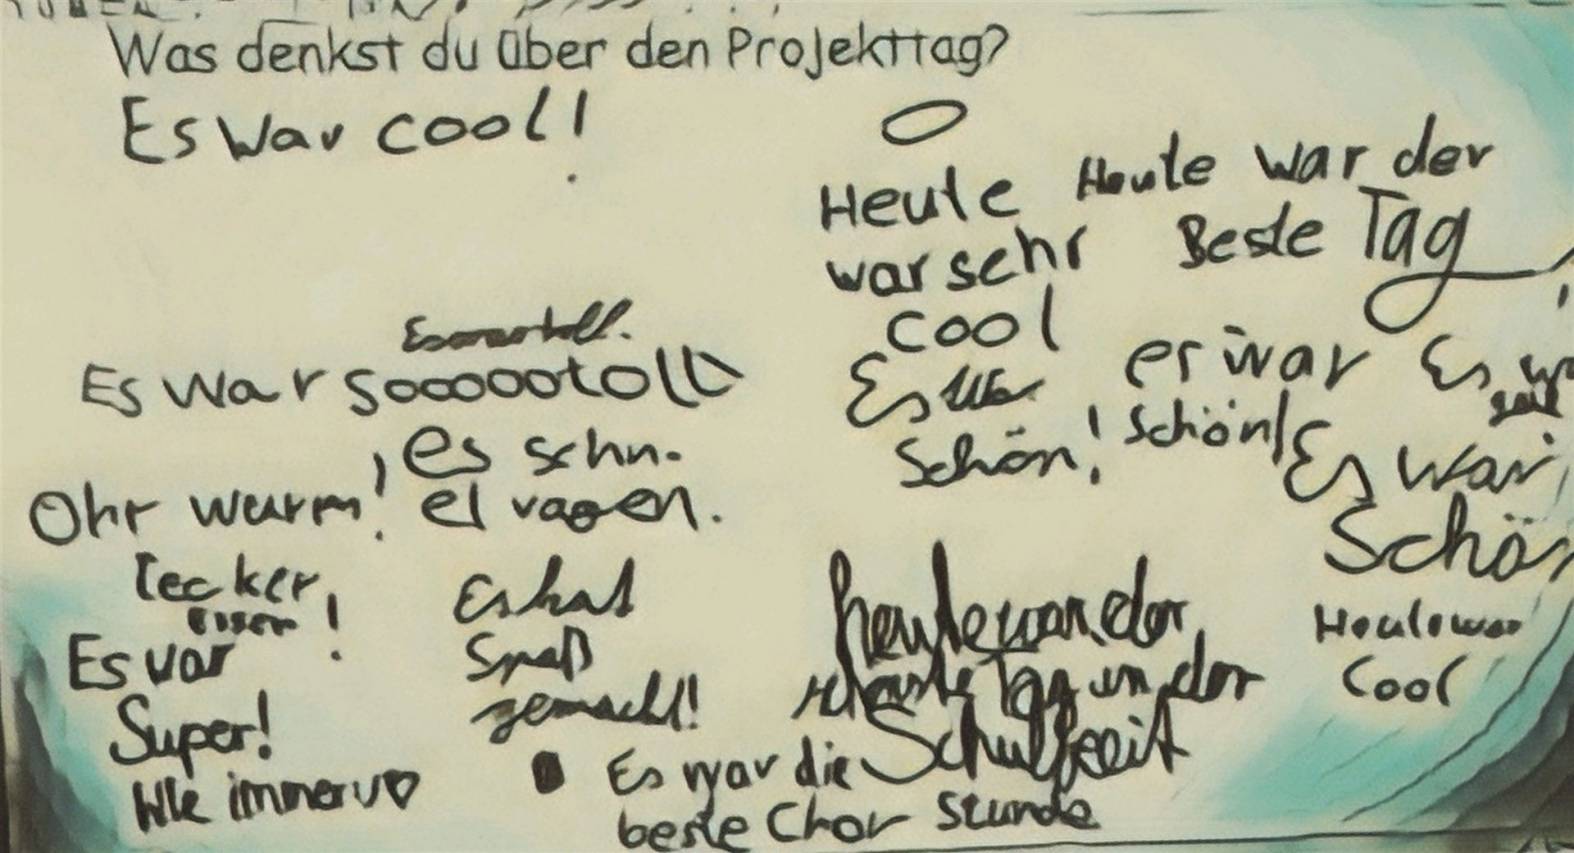 Was denkst du über den Projekttag?
Es war cool!
Heute
war sehr
cool
Heute war der
Beste Tag
er war
schön!
Es war sooooootoll
Es
schön!
Es
Es war
Schö
es schn.
Ohr wurm!
el
lecker
Es war
Super!
Wie immer ♡
Es hat
Spaß
gemacht!
heute war der
schönste Tag in der
Schulzeit
Es war die
beste Chor Stunde
Heute war
Cool